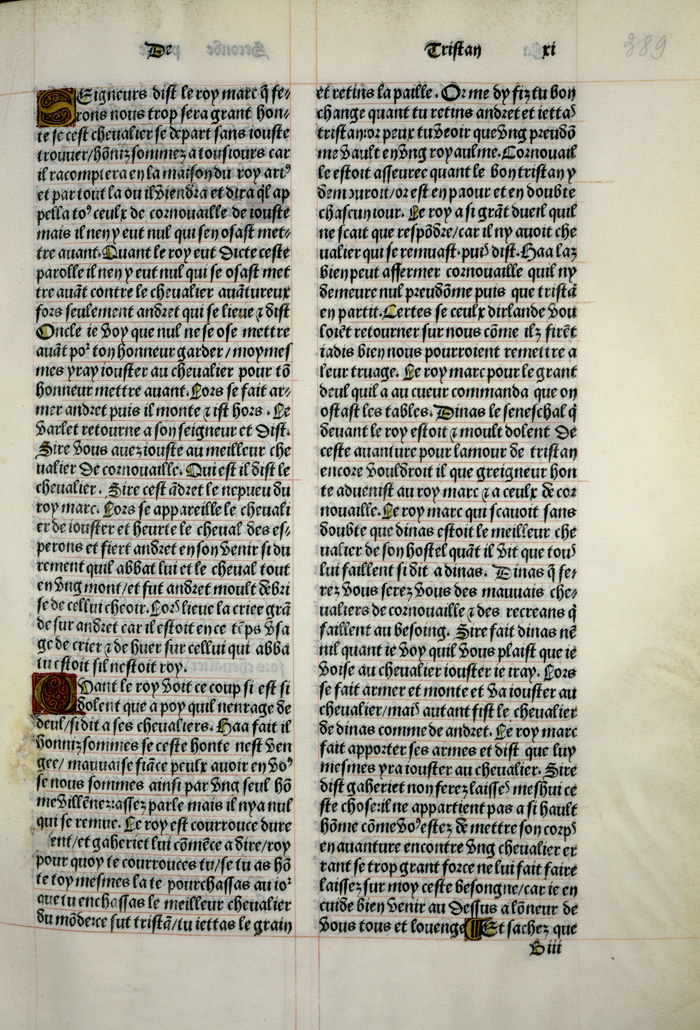 De
Tristan
xi
389
SEigneurs dist le roy marc q̃ fe⸗
rons nous trop sera grant hon⸗
te se cest chevalier se depart sans iouste
trouuer/hõniz sommez a tousiours car
il racomptera en la maison du roy artꝰ
et par tout la ou il viendra et dira q̃l ap
pella toꝰ ceulx de cornouaille de iouste
mais il nen y eut nul qui sen osast met⸗
tre auant. Quant le roy eut dicte ceste
parolle il nen y eut nul qui se osast met
tre auãt contre le chevalier auãtureux
fors seulement andret qui se lieue ⁊ dist
Oncle ie voy que nul ne se ose mettre
auãt poꝛ ton honneur garder/moymes
mes yray iouster au chevalier pour tõ
honneur mettre auant. Lors se fait ar⸗
mer andret puis il monte ⁊ ist hors. Le
varlet retourne a son seigneur et dist.
Sire vous auez iouste au meilleur che
ualier de cornouaille. Qui est il dist le
chevalier. Sire cest ãdret le nepueu du
roy marc. Lors se appareille le chevali
er de iouster et heurte le cheval des es⸗
perons et fiert andret en son venir si du
rement quil abbat lui et le cheval tout
en vng mont/et fut andret moult dẽbri
se de cellui cheoir. Lors lieue la crier grã
de sur andret car il estoit en ce tẽps vsa
ge de crier ⁊ de huer sur cellui qui abba
tu estoit sil nestoit roy.
QVant le roy voit ce coup si est si
dolent que a poy quil nenrage de
deul/si dit a ses chevaliers. Haa fait il
honniz sommes se ceste honte nest ven
gee/ mauuaise fiãce peulx auoir en voꝰ
se nous sommes ainsi par vng seul hõ
me villẽnez:assez parle mais il nya nul
qui se remue. Le roy est courrouce dure
ent/et gaheriet lui cõmẽce a dire/roy
pour quoy te courrouces tu/se tu as hõ
te toy mesmes la te pourchassas au ioꝛ
que tu enchassas le meilleur chevalier
du mõde:ce fut tristã/tu iettas le grain
et retins la paille. Or me dy fiz tu bon
change quant tu retins andret et iettas
tristan:or peux tu veoir que vng preudõ
me vault en vng royaulme. Cornouail
le estoit asseuree quant le bon tristan y
demouroit/or est en paour et en doubte
chascun iour. Le roy a si grãt dueil quil
ne scait que respõdre/car il ny auoit che
ualier qui se remuast. puis dist. Haa las
bien peut affermer cornouaille quil ny
demeure nul preudõme puis que tristã
en partit. Certes se ceulx dirlande vou
loiẽt retourner sur nous cõme ilz firẽt
iadis bien nous pourroient remettre a
leur truage. Le roy marc pour le grant
deul quil a au cueur commanda que on
ostast les tables. Dinas le seneschal q̃
deuant le roy estoit ⁊ moult dolent de
ceste auanture pour lamour de tristan
encore vouldroit il que greigneur hon
te aduenist au roy marc ⁊ a ceulx de cor
nouaille. Le roy marc qui scauoit sans
doubte que dinas estoit le meilleur che
ualier de son hostel quãt il vit que tous
lui faillent si dit a dinas. Dinas q̃ fe⸗
rez vous serez vous des mauuais che⸗
ualiers de cornouaille ⁊ des recreans q̃
faillent au besoing. Sire fait dinas nẽ
nil quant ie voy quil vous plaist que ie
voise au chevalier iouster ie iray. Lors
se fait armer et monte et va iouster au
chevalier/mais autant fist le chevalier
de dinas comme de andret. Le roy marc
fait apporter ses armes et dist que luy
mesmes yra iouster au chevalier. Sire
dist gaheriet non ferez laisses meshui ce
ste chose:il ne appartient pas a si hault
hõme cõme voꝰ estez de mettre son corps
en auanture encontre vng chevalier er
rant se trop grant force ne lui fait faire
laissez sur moy ceste besongne/car ie en
cuide bien venir au dessus a lõneur de
vous tous et louenge ¶ Et sachez que
B iii